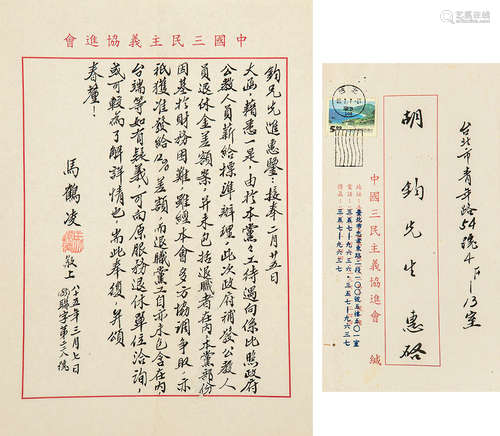 中國三民主義協進會
鈞兄先進惠鑒：接奉二月廿五日
大函藉悉一是，由於本黨黨工待遇向係比照政府
公教人員薪給標準辦理，此次政府補發公教人
員退休金差額案，并未包括退職者在內，本黨部份
因基於財務困難，雖經本會多方協調爭取，亦
祇獲准發給
差額，而退職黨工自亦未包含在內
台端等如有疑義，可向原服務退休單位洽詢，
或可較為了解詳情也，耑此奉復，并頌
春釐！
馬鶴凌
敬上
八五年三月七日
聯字第二六號
台北市青年路54號4F-13室
胡鈞先生惠啓
中國三民主義協進會 緘
地址：臺北市忠孝東路二段一〇〇號五樓五〇一室
電話：三五七-九六三六．三五七-九六三七
傳真：三五七-九六三七
5.00